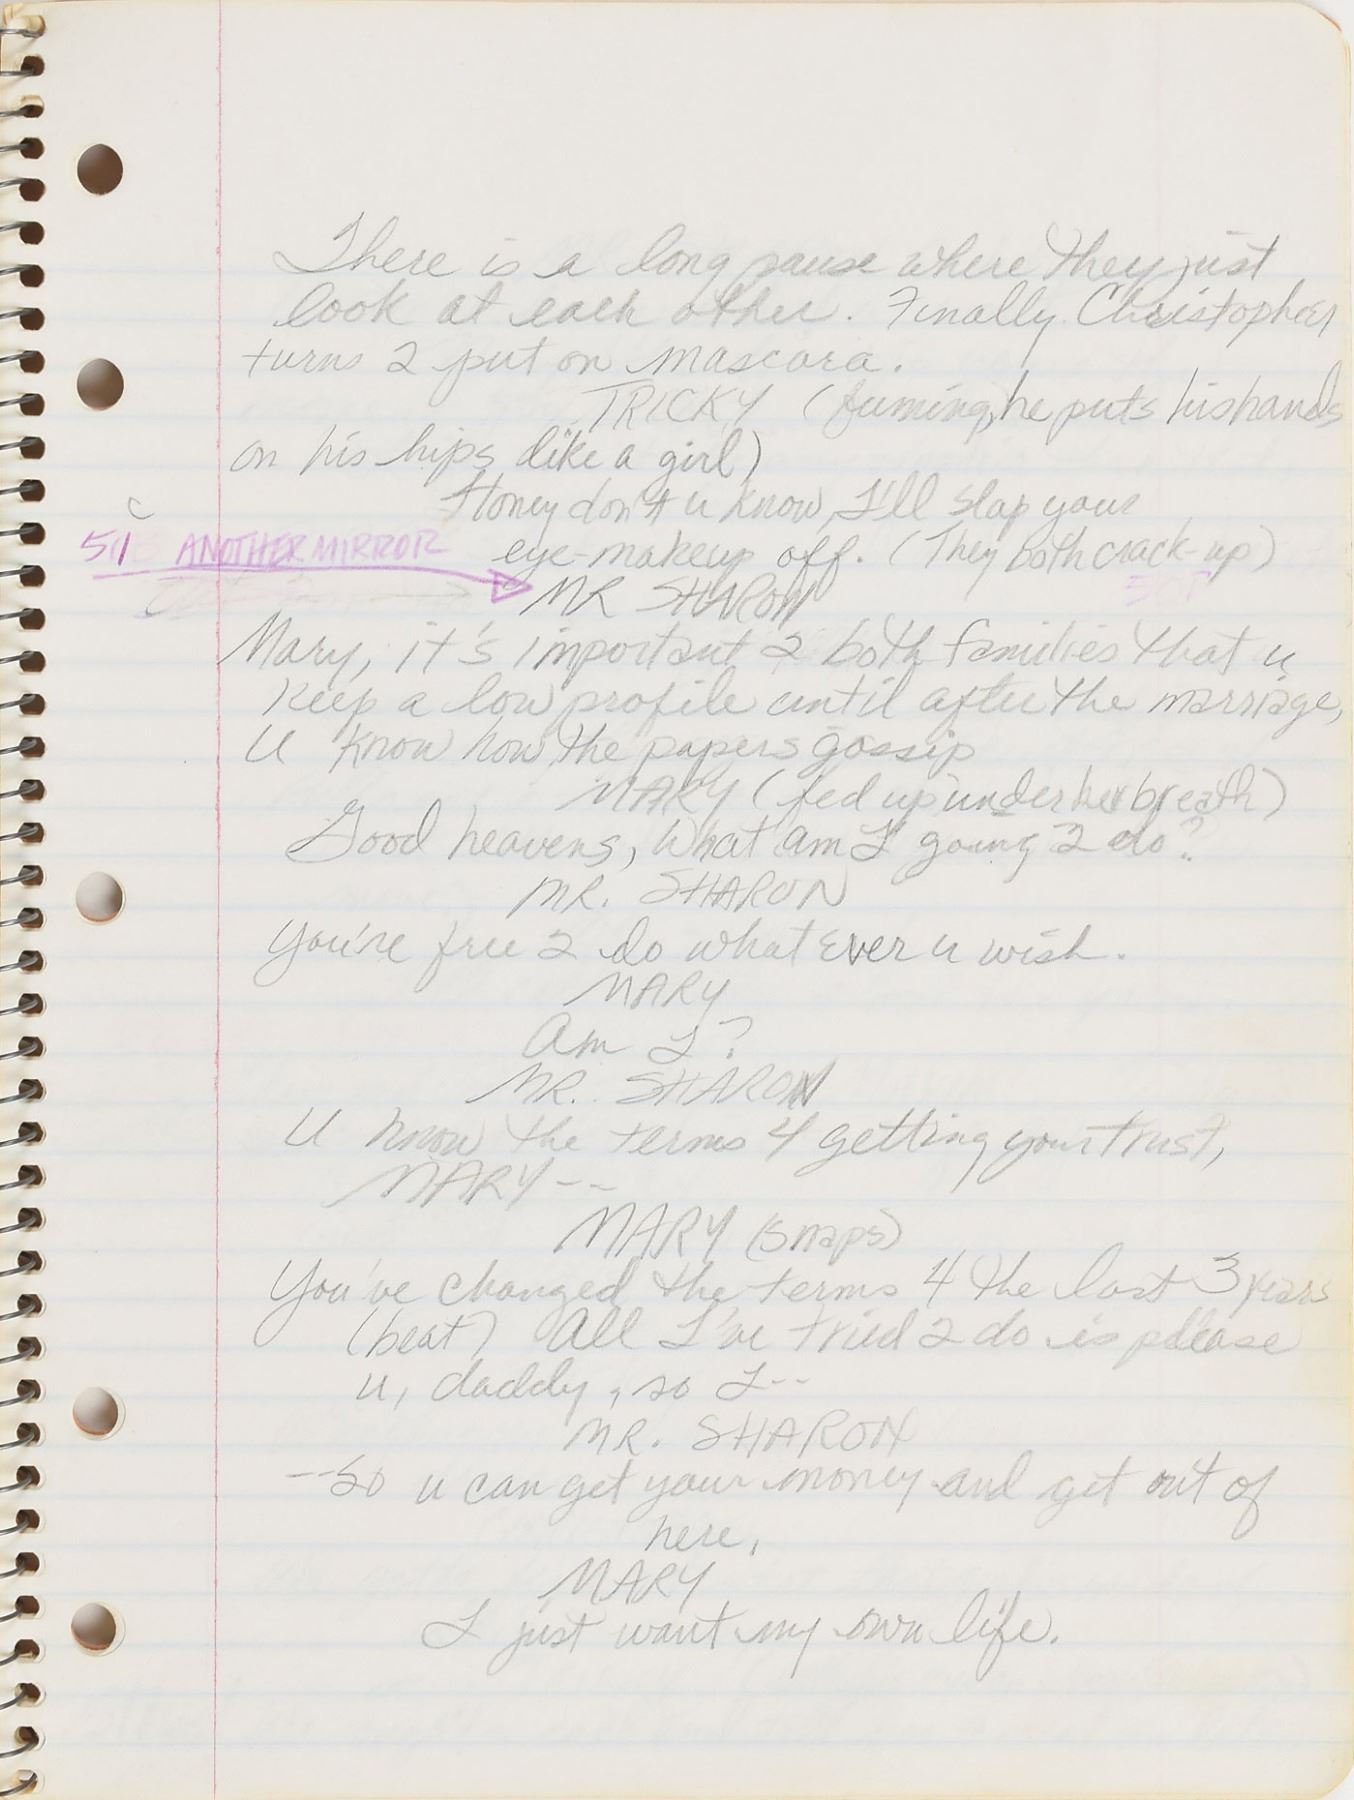 There is a long pause where they just
look at each other. Finally Christopher
turns 2 put on mascara.
TRICKY (fuming, he puts his hands
on his hips like a girl)
Honey don't u know I'll slap your
C
51 ANOTHER MIRROR
eye-makeup off. (They both crack-up)
MR SHARON
Mary, it's important 2 both families that u
keep a low profile until after the marriage,
U know how the papers gossip
MARY (fed up under her breath)
Good heavens, What am I going 2 do?
MR. SHARON
You're free 2 do what ever u wish.
MARY
Am I?
MR. SHARON
U know the terms 4 getting your trust,
MARY--
MARY (snaps)
You've changed the terms 4 the last 3 years
(beat) All I've tried 2 do is please
u, daddy, so I--
MR. SHARON
--So u can get your money and get out of
here,
MARY
I just want my own life.